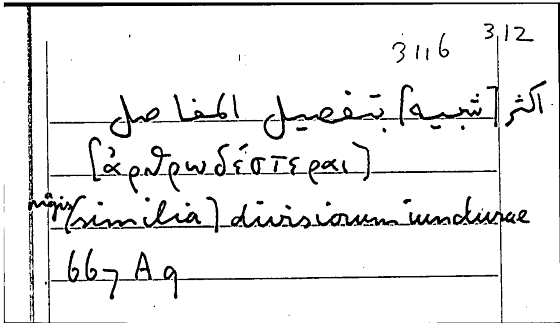 3116 312
اكثر [شبيه] بتفصيل المفاصل
[ἀρθρωδέστεραι]
magis (similia) divisiorum iuncturae
667 A 9